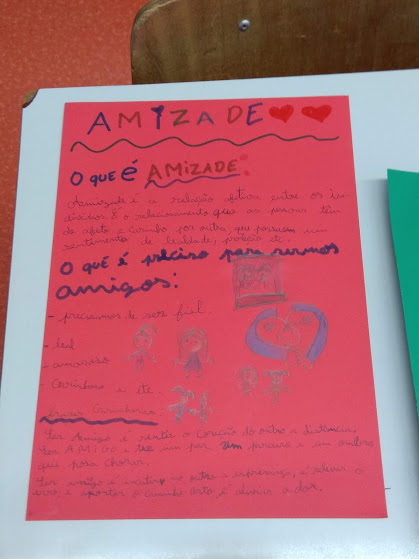 AMIZADE
O QUE É AMIZADE:
Aamizade é a relação afetiva entre os in-
divíduos. É o relacionamento que as pessoas têm
de afeto e carinho por outra, que possuem um
sentimento de lealdade, proteção etc.
O que é preciso para sermos
amigos:
- precisamos de ser fiel.
- leal
- amoroso
- Carinhoso e etc.
Ser Amigo é sentir o Coração do outro a distância,
Ser AMiGO é ter um par sem parceiro e um ombro
que possa chorar.
Ser amigo é mostrar ao outro a esperança, é aliviar o
erro, é apontar o caminho certo, é aliviar a dor.